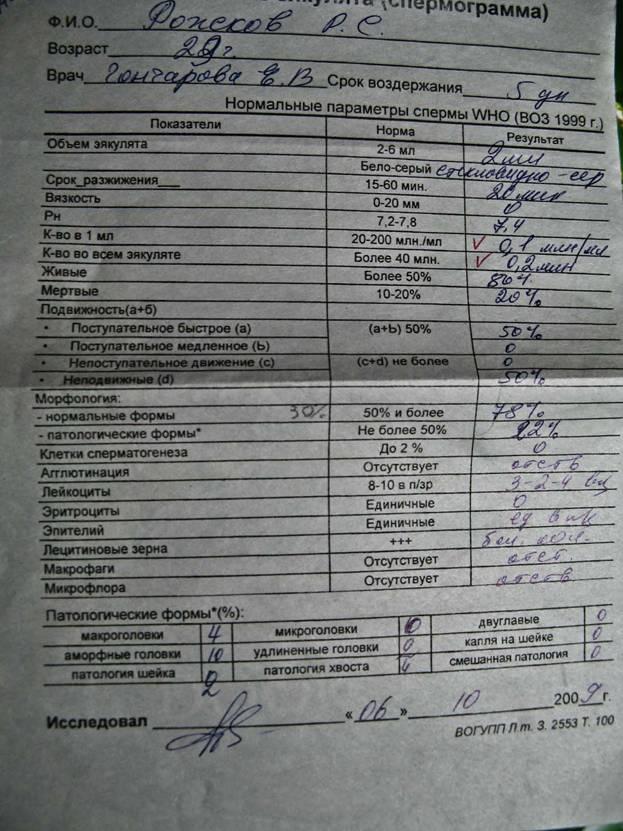 эякулята (спермограмма)
Ф.И.О. Рожков Р. С.
Возраст 29 г
Врач Гончарова Е.В Срок воздержания 5 дн
Нормальные параметры спермы WHO (ВОЗ 1999 г.)
Показатели Норма Результат
Объем эякулята 2-6 мл 2мл
Бело-серый стекловидно-сер
Срок_разжижения___ 15-60 мин. 20 мин
Вязкость 0-20 мм 0
Рн 7,2-7,8 7,4
К-во в 1 мл 20-200 млн./мл ✓ 0,1 млн/мл
К-во во всем эякуляте Более 40 млн. ✓ 0,2млн
Живые Более 50% 80%
Мертвые 10-20% 20%
Подвижность(а+б)
• Поступательное быстрое (а) (а+Ь) 50% 50%
• Поступательное медленное (Ь) 0
• Непоступательное движение (с) (c+d) не более 0
• Неподвижные (d) 50%
Морфология:
- нормальные формы 30% 50% и более 78%
- патологические формы* Не более 50% 22%
Клетки сперматогенеза До 2 % 0
Агглютинация Отсутствует отсутв
Лейкоциты 8-10 в п/зр 3-2-4
Эритроциты Единичные 0
Эпителий Единичные ед в п/к
Лецитиновые зерна +++ бол. кол.
Макрофаги Отсутствует отст.
Микрофлора Отсутствует отсутв
Патологические формы*(%):
макроголовки 4 микроголовки 6 двуглавые 0
аморфные головки 10 удлиненные головки 0 капля на шейке 0
патология шейка 2 патология хвоста смешанная патология 0
Исследовал «06» 10 2009г.
ВОГУПП Л.т. З. 2553 Т. 100